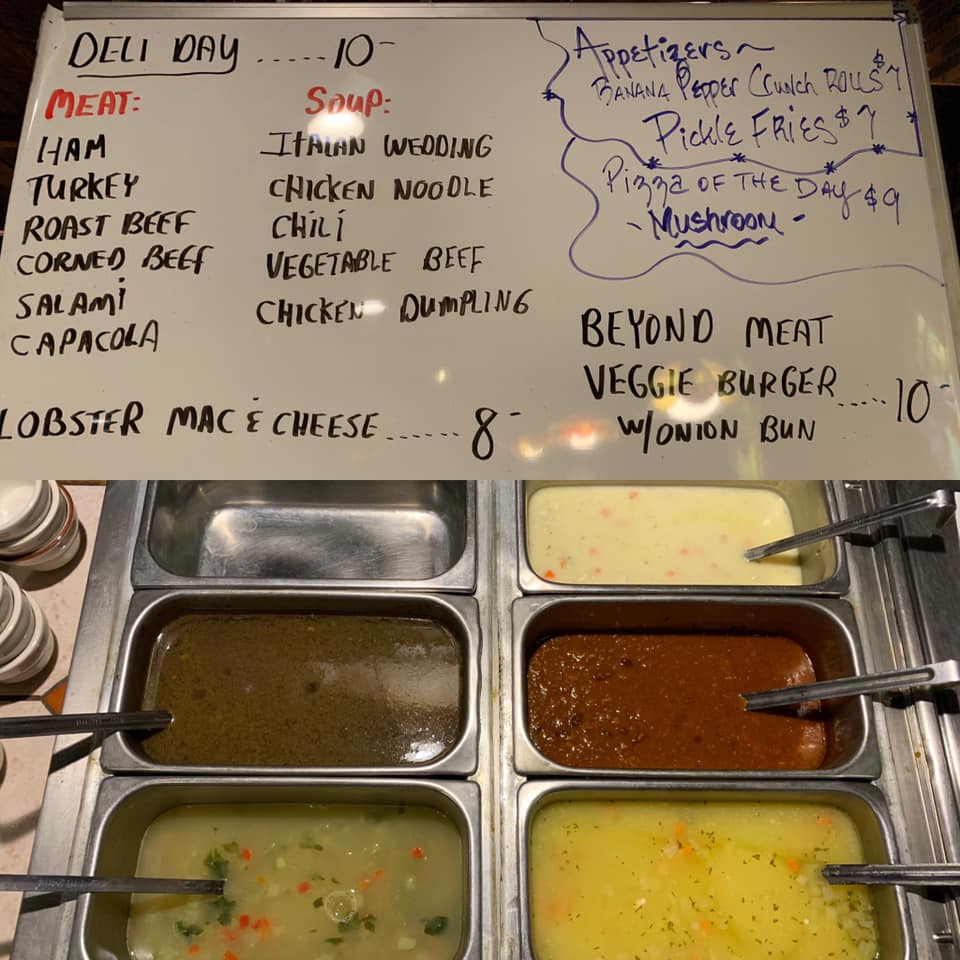 DELI DAY ..... 10-
MEAT:
HAM
TURKEY
ROAST BEEF
CORNED BEEF
SALAMI
CAPACOLA
SOUP:
ITALIAN WEDDING
CHICKEN NOODLE
CHILI
VEGETABLE BEEF
CHICKEN DUMPLING
LOBSTER MAC & CHEESE ...... 8-
Appetizers ~
BANANA Pepper Crunch ROLLS $7
Pickle FRIES $7
Pizza OF THE DAY $9
- Mushroom -
BEYOND MEAT
VEGGIE BURGER ..... 10-
W/ONION BUN